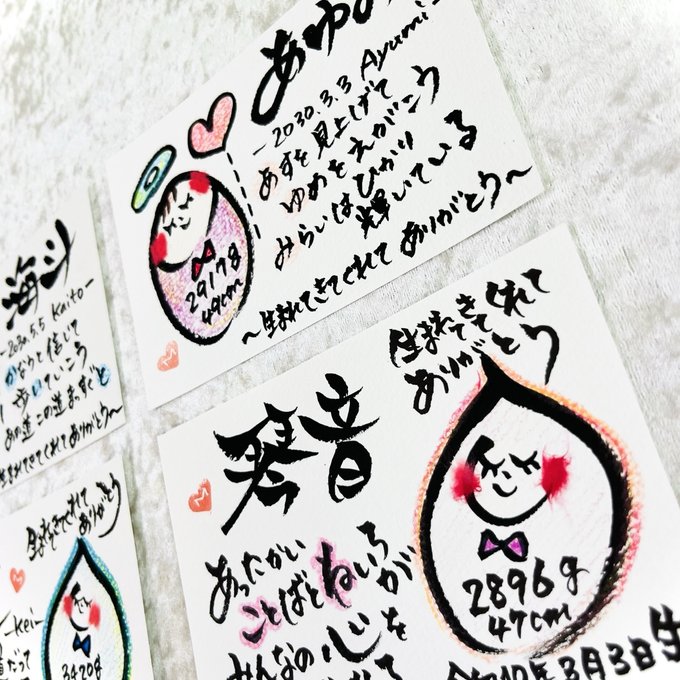 あゆみ
-2030.3.3 Ayumi-
あすを見上げて
ゆめをえがこう
みらいはひかり
輝いている
~生まれてきてくれて ありがとう~
2917g
49cm
海斗
-2030.5.5 Kaito-
かならと信じて
一歩いていこう
あの道この道まっすぐと
生まれてきてくれてありがとう~
生まれてきてくれて
ありがとう
琴音
あったかい
ことばとねいろが
みんなの心を
2896g
47cm
3月3日生
生まれてきてくれて
ありがとう
-kei-
3420g